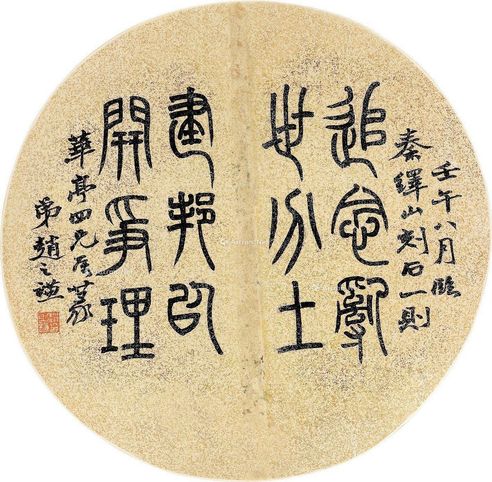 壬午八月臨
秦繹山刻石一則
追念亂
世分土
建邦㠯
開爭理
華亭四兄属篆
弟趙之謙